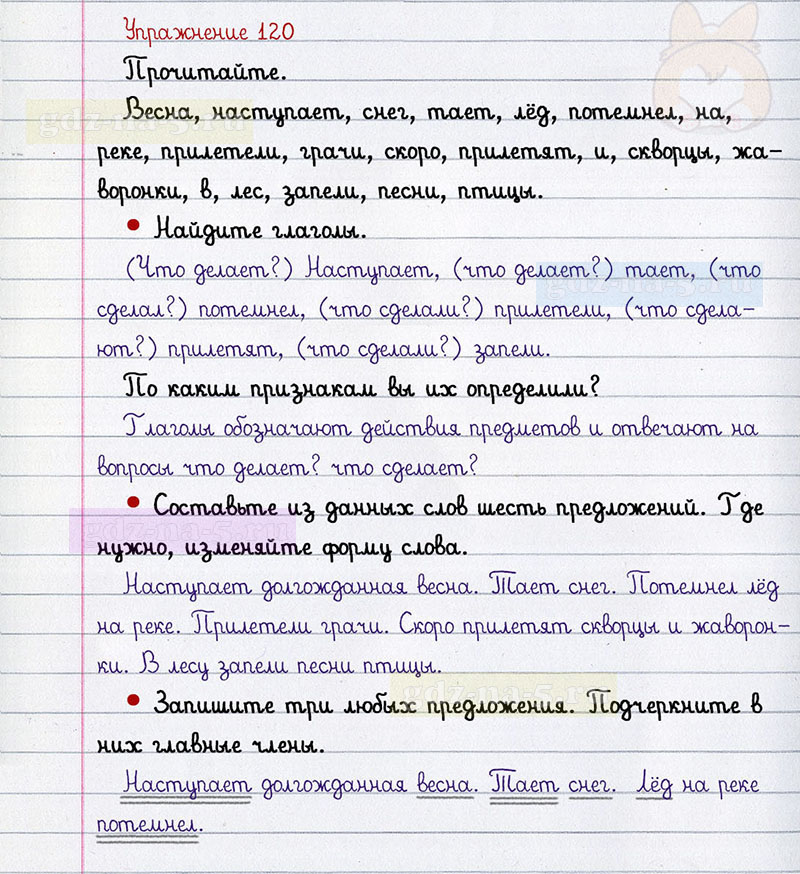 Упражнение 120
Прочитайте.
Весна, наступает, снег, тает, лёд, потемнел, на,
реке, прилетели, грачи, скоро, прилетят, и, скворцы, жа-
воронки, в, лес, запели, песни, птицы.
• Найдите глаголы.
(Что делает?) Наступает, (что делает?) тает, (что
сделал?) потемнел, (что сделали?) прилетели, (что сдела-
ют?) прилетят, (что сделали?) запели.
По каким признакам вы их определили?
Глаголы обозначают действия предметов и отвечают на
вопросы что делает? что сделает?
• Составьте из данных слов шесть предложений. Где
нужно, изменяйте форму слова.
Наступает долгожданная весна. Тает снег. Потемнел лёд
на реке. Прилетели грачи. Скоро прилетят скворцы и жаворон-
ки. В лесу запели песни птицы.
• Запишите три любых предложения. Подчеркните в
них главные члены.
Наступает долгожданная весна. Тает снег. Лёд на реке
потемнел.
gdz-na-5.ru
gdz-na-5.ru
gdz-na-5.ru
gdz-na-5.ru